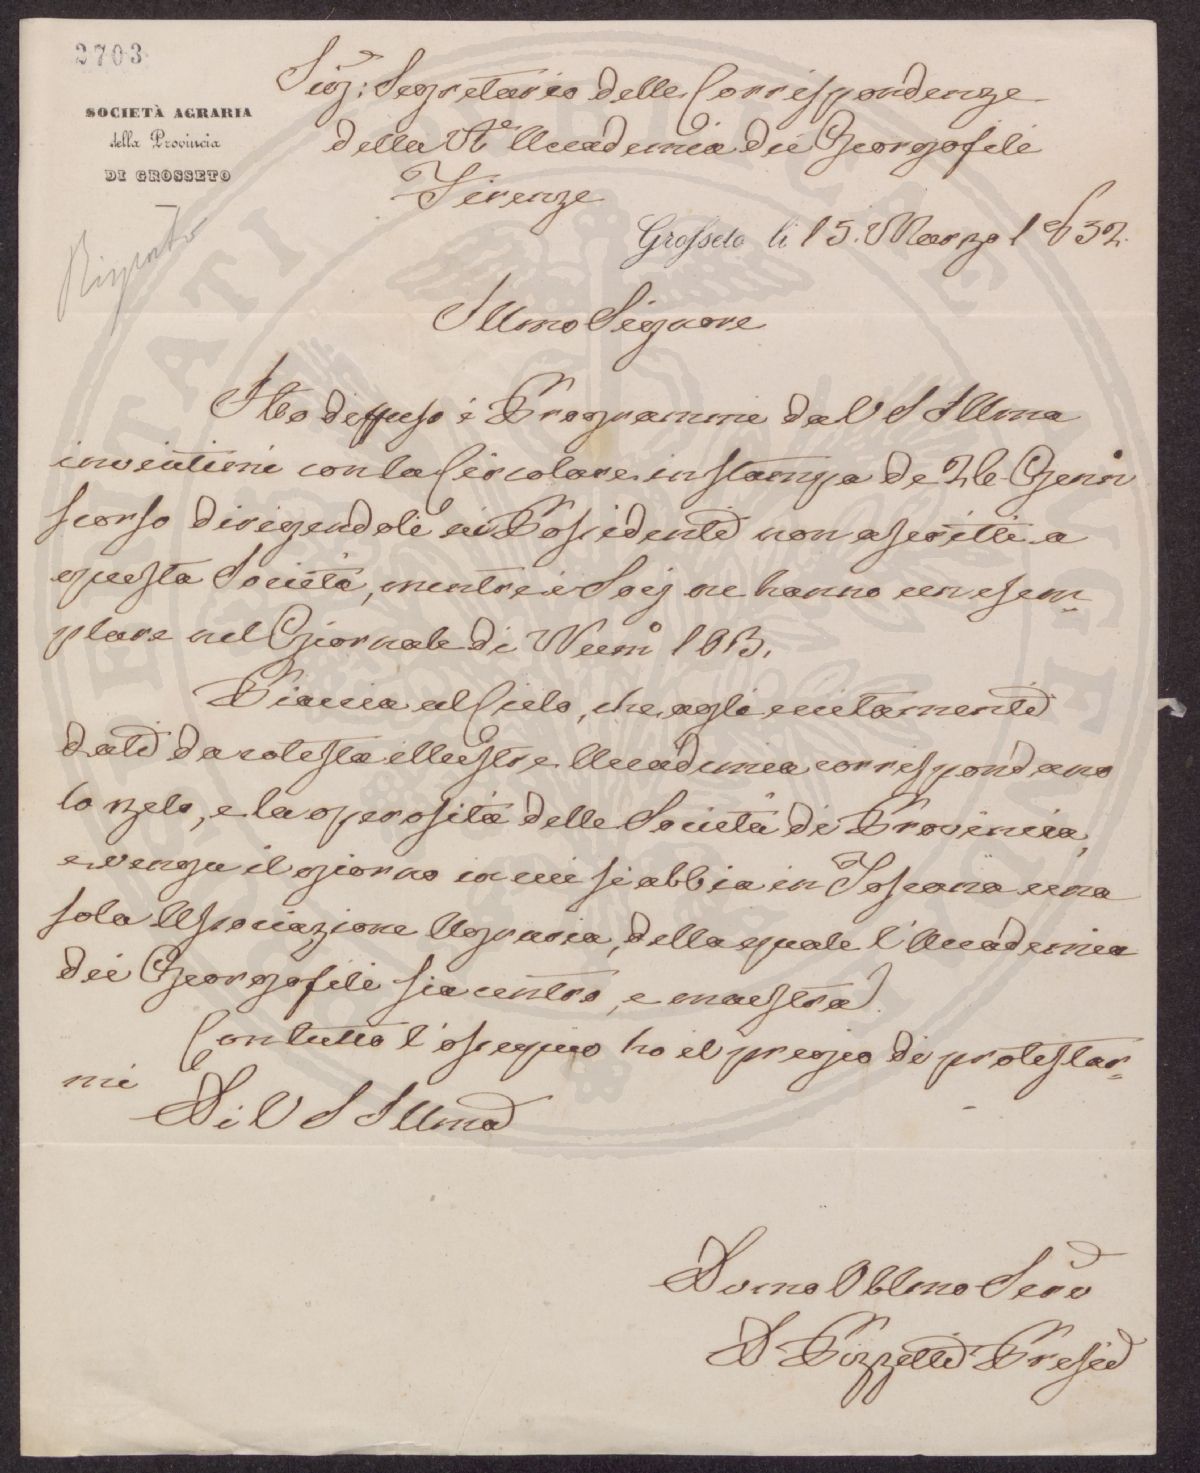 2703
SOCIETÀ AGRARIA
della Provincia
DI GROSSETO
Risposto
Sig: Segretario delle Corrispondenze
della Rle Accademia dei Georgofili
Firenze
Grosseto li 15. Marzo 1852.
Illmo Signore
Ho diffuso i Programmi da V S Illma
inviatimi con la Circolare in stampa de 26 Genn
scorso dirigendoli ai Possidenti non ascritti a
questa Società, mentre i Socij ne hanno un esem-
plare nel Giornale di Num 1013.
Piaccia al Cielo, che agli eccitamenti
dati da cotesta illustre Accademia corrispondano
lo zelo, e la operosità delle Società di Provincia,
e venga il giorno in cui si abbia in Toscana una
sola Associazione Agraria, della quale l'Accademia
dei Georgofili sia centro, e maestra.
Con tutto l'ossequio ho il pregio di protestar-
mi
Di V S Illma
Devmo Obblmo Serv
D Pizzetti Presid